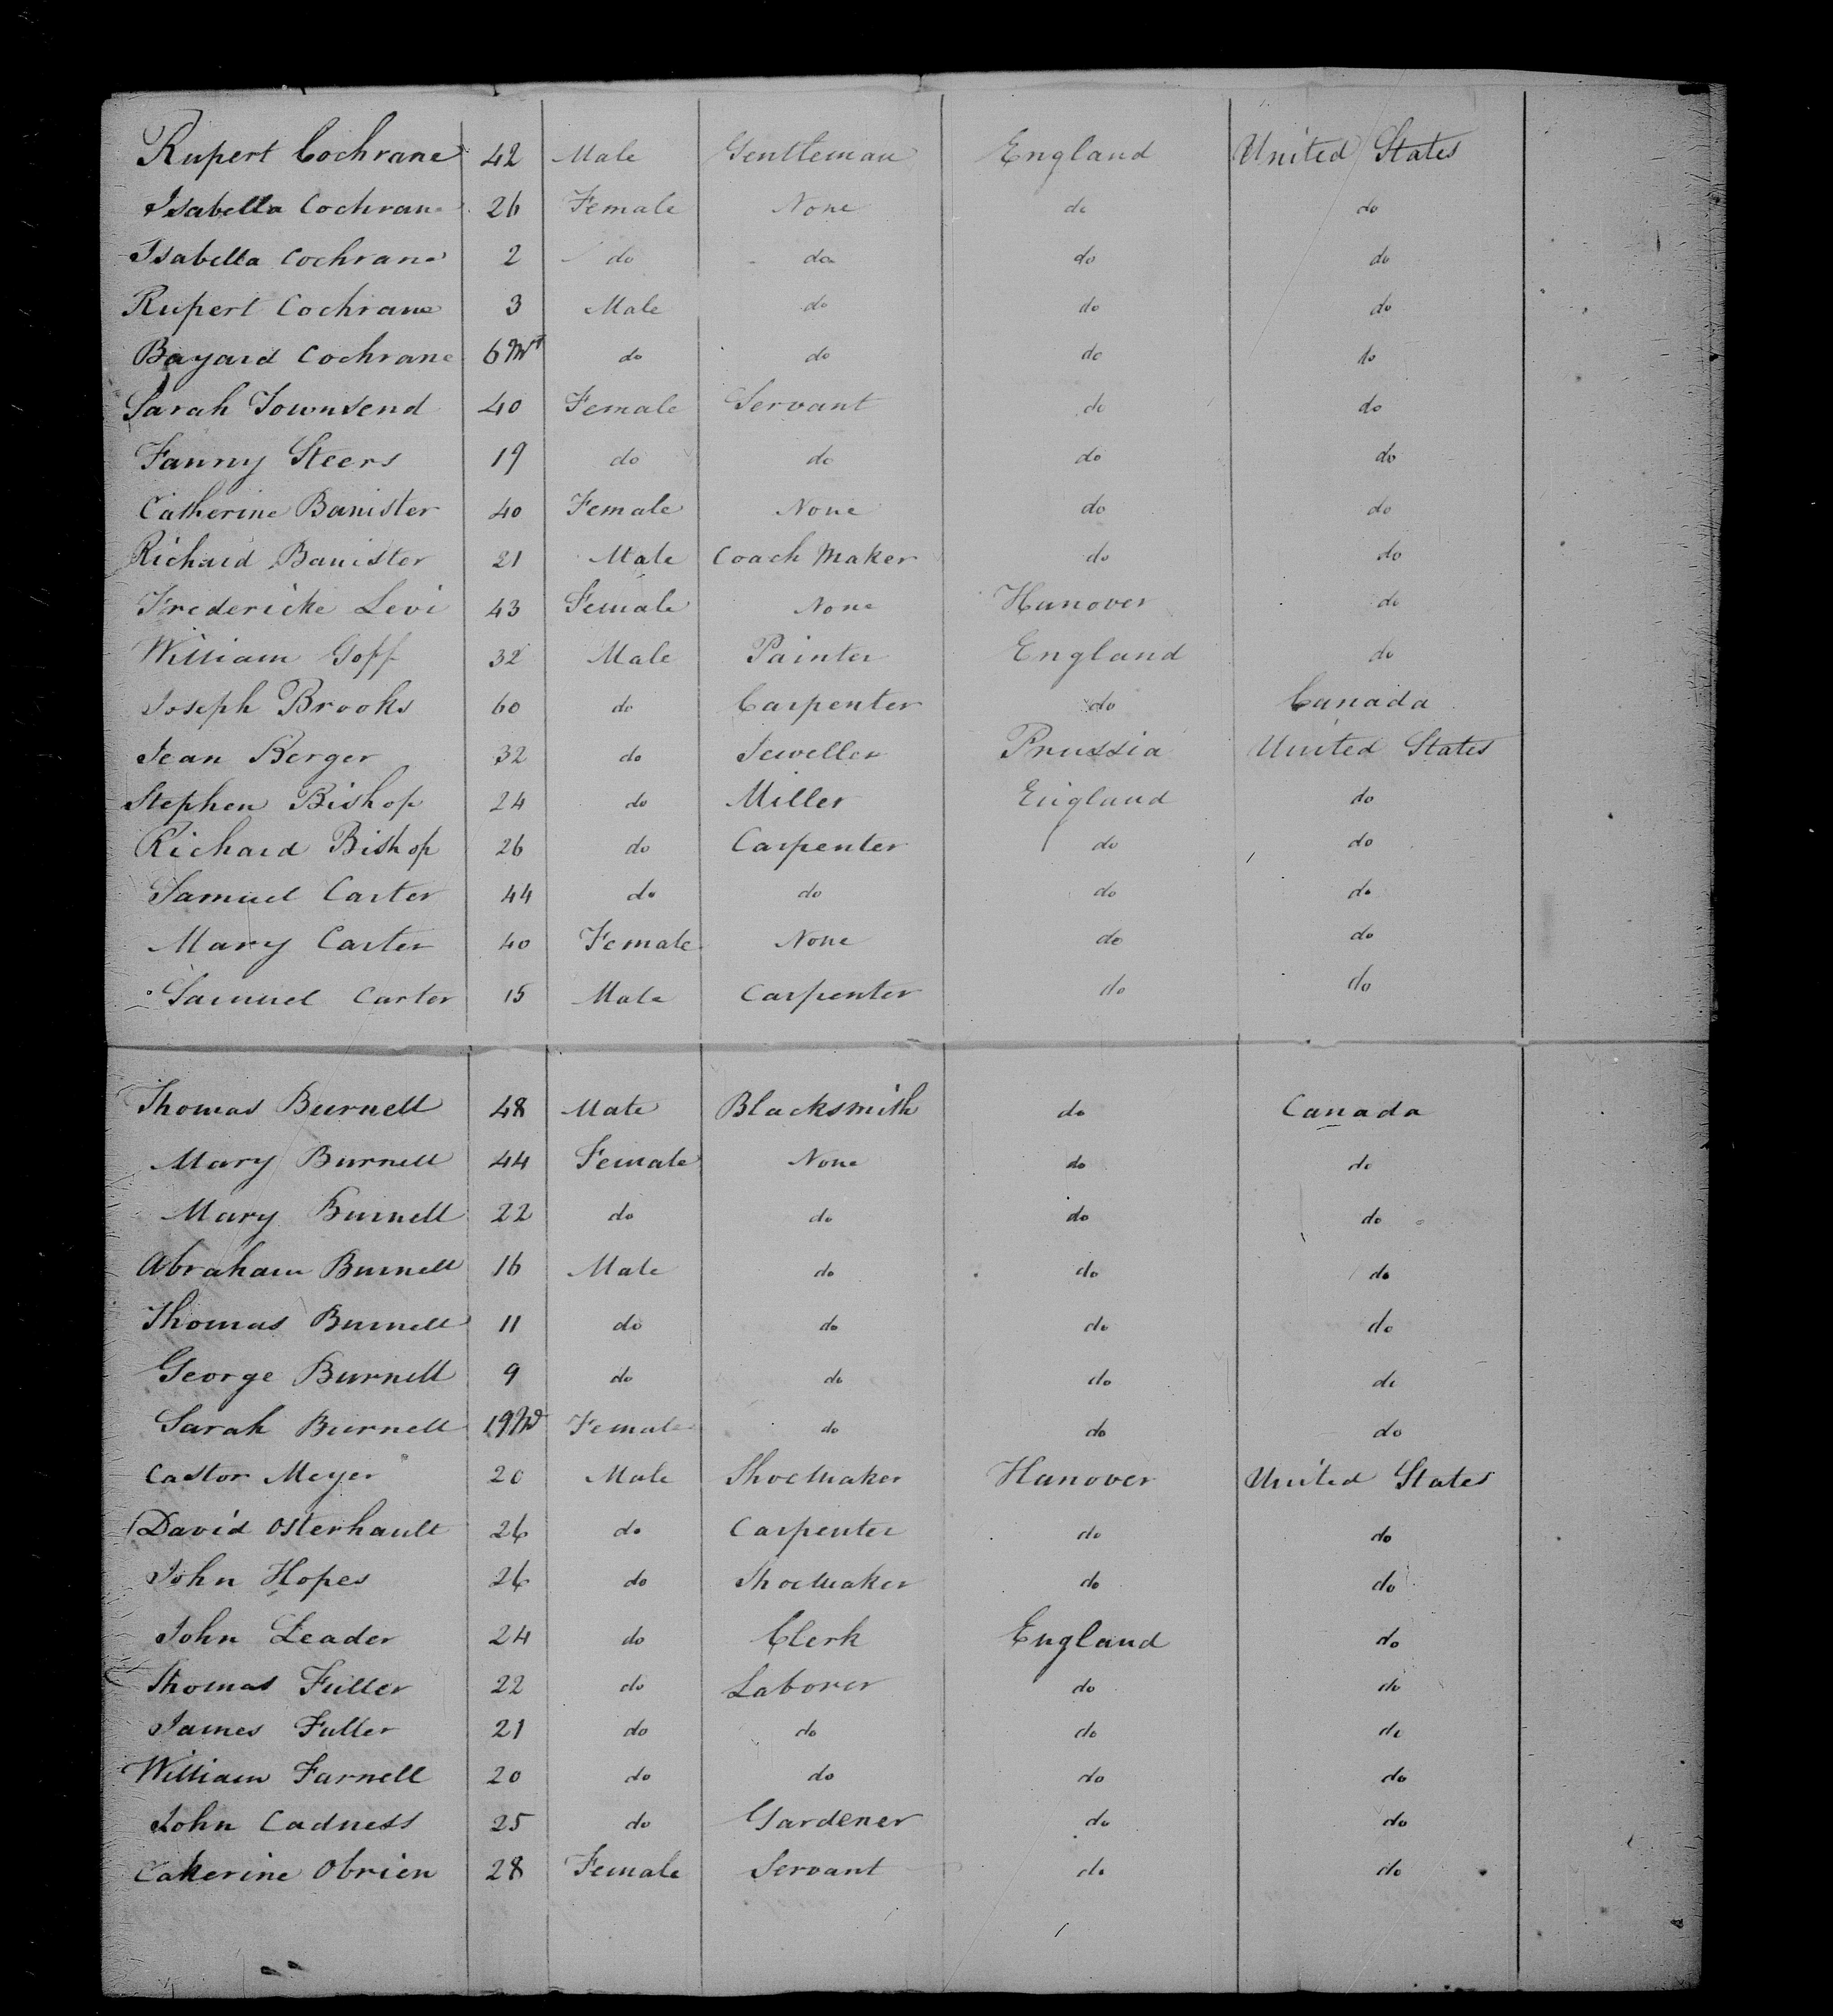 Rupert Cochrane 42 Male Gentleman England United States
Isabella Cochrane 26 Female None do do
Isabella Cochrane 2 do do do do
Rupert Cochrane 3 Male do do do
Bayard Cochrane 6 Ms do do do do
Sarah Townsend 40 Female Servant do do
Fanny Steers 19 do do do do
Catherine Banister 40 Female None do do
Richard Banister 21 Male Coach Maker do do
Fredericke Levi 43 Female None Hanover do
William Goff 32 Male Painter England do
Joseph Brooks 60 do Carpenter do Canada
Jean Berger 32 do Jeweller Prussia United States
Stephen Bishop 24 do Miller England do
Richard Bishop 26 do Carpenter do do
Samuel Carter 44 do do do do
Mary Carter 40 Female None do do
Samuel Carter 15 Male Carpenter do do
Thomas Burnell 48 Male Blacksmith do Canada
Mary Burnell 44 Female None do do
Mary Burnell 22 do do do do
Abraham Burnell 16 Male do do do
Thomas Burnell 11 do do do do
George Burnell 9 do do do do
Sarah Burnell 19 Female do do do
Castor Meyer 20 Male Shoemaker Hanover United States
David Osterhault 26 do Carpenter do do
John Hopes 26 do Shoemaker do do
John Leader 24 do Clerk England do
Thomas Fuller 22 do Laborer do do
James Fuller 21 do do do do
William Farnell 20 do do do do
John Cadness 25 do Gardener do do
Catherine Obrien 28 Female Servant do do